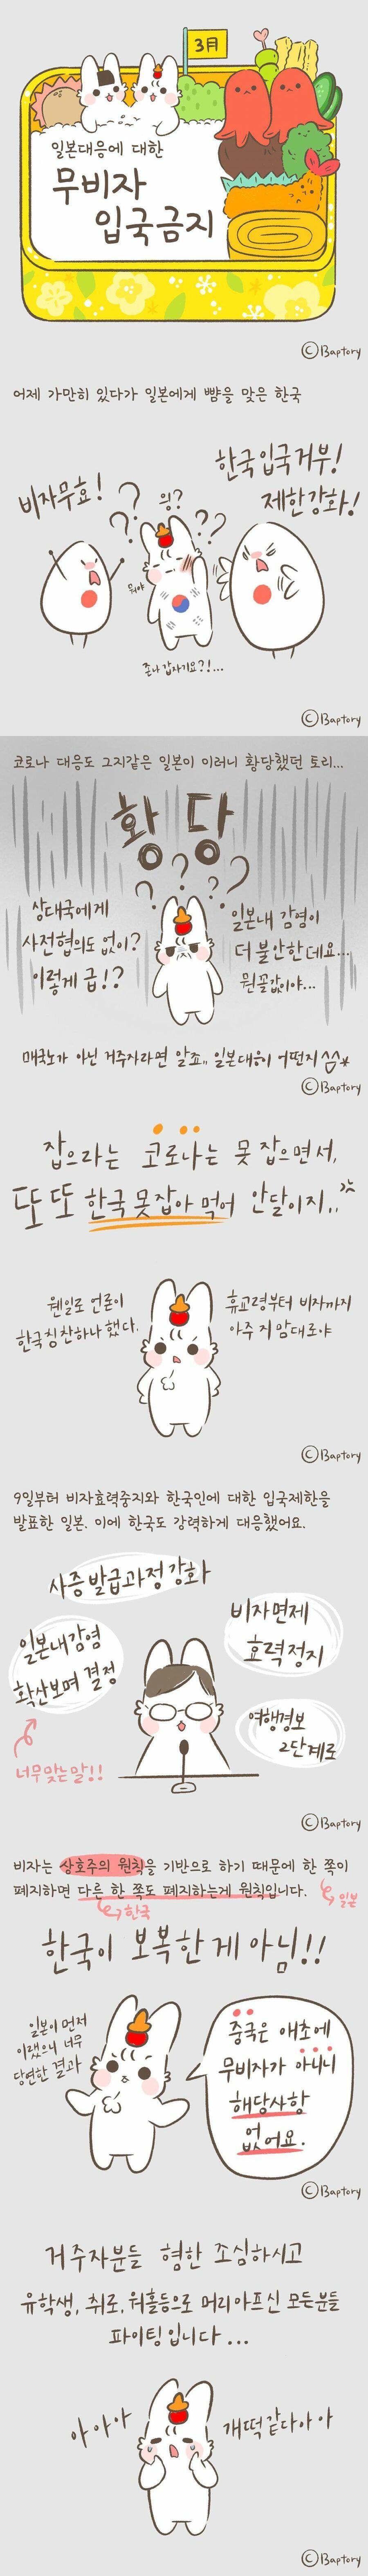 3월
일본대응에 대한
무비자
입국금지
©Baptory
어제 가만히 있다가 일본에게 뺨을 맞은 한국
한국입국거부!
제한강화!
비자무효!
읭?
뭐야
존나 갑자기요?!...
©Baptory
코로나 대응도 그지같은 일본이 이러니 황당했던 토리...
황당
상대국에게
사전협의도 없이?
이렇게 급!?
일본내 감염이
더 불안한데요...
뭔꼴값이야...
매국노가 아닌 거주자라면 알죠,, 일본대응이 어떤지^^*
©Baptory
잡으라는 코로나는 못 잡으면서,
또 또 한국 못 잡아 먹어 안달이지,,
웬일로 언론이
한국칭찬하나 했다.
휴교령부터 비자까지
아주 지 맘대로야
©Baptory
9일부터 비자효력중지와 한국인에 대한 입국제한을
발표한 일본. 이에 한국도 강력하게 대응했어요.
사증 발급과정 강화
비자면제
효력정지
일본내감염
확산보며 결정
너무 맞는말!!
여행경보
2단계로
©Baptory
비자는 상호주의 원칙을 기반으로 하기 때문에 한 쪽이
폐지하면 다른 한 쪽도 폐지하는게 원칙입니다.
일본
한국
한국이 보복한 게 아님!!
일본이 먼저
이랬으니 너무
당연한 결과
중국은 애초에
무비자가 아니니
해당사항
없어요.
©Baptory
거주자분들 혐한 조심하시고
유학생, 취로, 워홀등으로 머리아프신 모든분들
파이팅입니다...
아아아
개떡같다아아
©Baptory